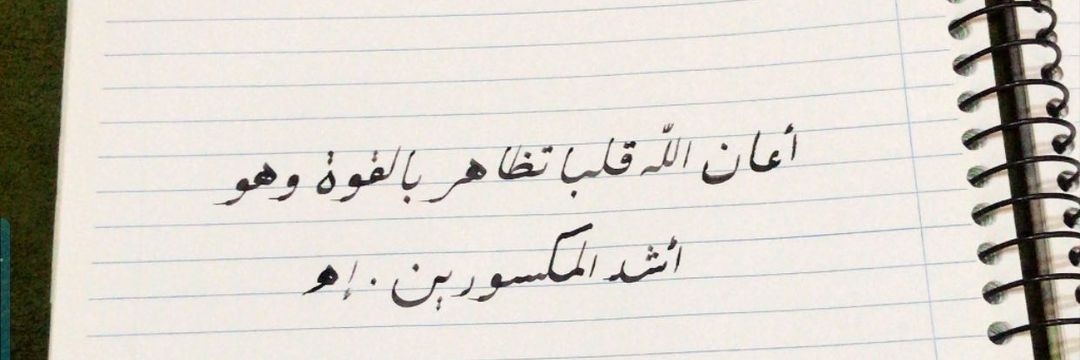 أعان اللّه قلبا تظاهر بالقوة وهو
أشد المكسورين . إهـ